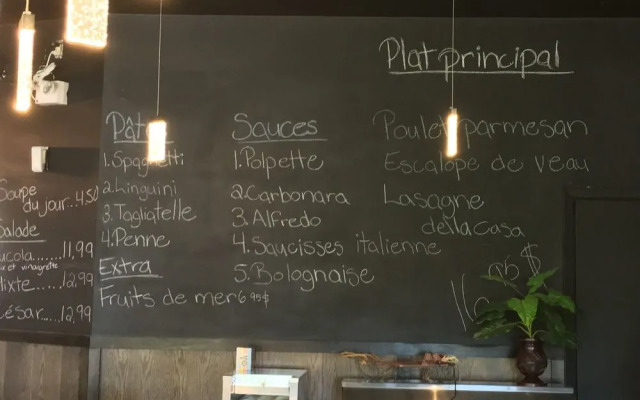 Plat principal
Soupe
du jour..4.50
Salade
ucola....11,99
et vinaigrette
ixte......12.99
César....12,99
Pâtes
1.Spaghetti
2.Linguini
3.Tagliatelle
4.Penne
Extra
Fruits de mer 6 95$
Sauces
1.Polpette
2.Carbonara
3.Alfredo
4.Saucisses italienne
5.Bolognaise
Poulet parmesan
Escalope de veau
Lasagne
della Casa